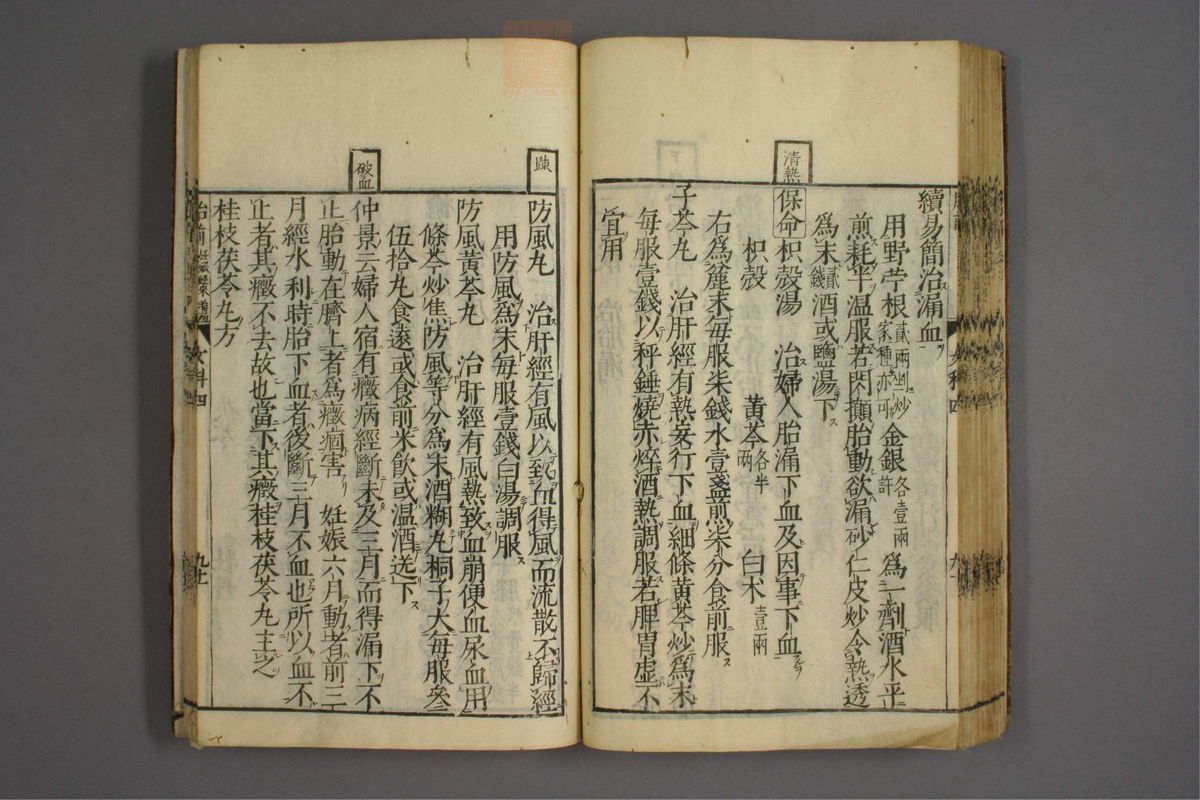 續易簡治漏血
用野苧根貳兩剉炒家種亦可金銀各壹兩許爲一劑酒水平
煎耗半温服若閃顚胎動欲漏砂仁皮炒令熱透
爲末貳錢酒或鹽湯下
清熱
保命枳殼湯 治婦人胎漏下血及因事下血
枳殼 黃芩各半兩 白朮壹兩
右爲麄末每服柒錢水壹盞煎柒分食前服
子芩丸 治肝經有熱妄行下血細條黃芩炒爲末
每服壹錢以秤錘燒赤焠酒熱調服若脾胃虛不
宜用
疎
防風丸 治肝經有風以致血得風而流散不歸經
用防風爲末每服壹錢白湯調服
防風黃芩丸 治肝經有風熱致血崩便血尿血用
條芩炒焦防風等分爲末酒糊丸桐子大每服叄
伍拾丸食遠或食前米飲或温酒送下
破血
仲景云婦人宿有癥病經斷未及三月而得漏下不
止胎動在臍上者爲癥痼害 妊娠六月動者前三
月經水利時胎下血者後斷三月不血也所以血不
止者其癥不去故也當下其癥桂枝茯苓丸主之
桂枝茯苓丸方
女科四